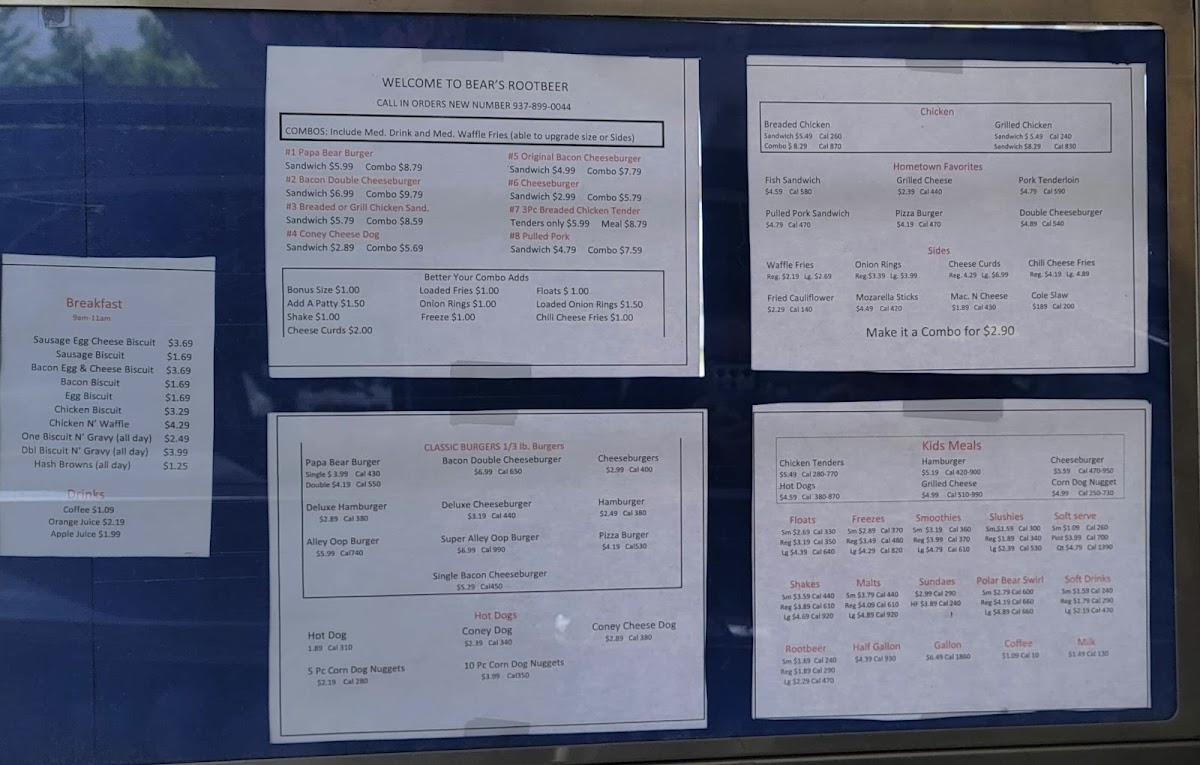 Breakfast
9am-11am
Sausage Egg Cheese Biscuit $3.69
Sausage Biscuit $1.69
Bacon Egg & Cheese Biscuit $3.69
Bacon Biscuit $1.69
Egg Biscuit $1.69
Chicken Biscuit $3.29
Chicken N' Waffle $4.29
One Biscuit N' Gravy (all day) $2.49
Dbl Biscuit N' Gravy (all day) $3.99
Hash Browns (all day) $1.25
Drinks
Coffee $1.09
Orange Juice $2.19
Apple Juice $1.99
WELCOME TO BEAR'S ROOTBEER
CALL IN ORDERS NEW NUMBER 937-899-0044
COMBOS: Include Med. Drink and Med. Waffle Fries (able to upgrade size or Sides)
#1 Papa Bear Burger
Sandwich $5.99 Combo $8.79
#2 Bacon Double Cheeseburger
Sandwich $6.99 Combo $9.79
#3 Breaded or Grill Chicken Sand.
Sandwich $5.79 Combo $8.59
#4 Coney Cheese Dog
Sandwich $2.89 Combo $5.69
#5 Original Bacon Cheeseburger
Sandwich $4.99 Combo $7.79
#6 Cheeseburger
Sandwich $2.99 Combo $5.79
#7 3Pc Breaded Chicken Tender
Tenders only $5.99 Meal $8.79
#8 Pulled Pork
Sandwich $4.79 Combo $7.59
Better Your Combo Adds
Bonus Size $1.00 Loaded Fries $1.00 Floats $ 1.00
Add A Patty $1.50 Onion Rings $1.00 Loaded Onion Rings $1.50
Shake $1.00 Freeze $1.00 Chili Cheese Fries $1.00
Cheese Curds $2.00
Chicken
Breaded Chicken Grilled Chicken
Sandwich $5.49 Cal 260 Sandwich $ 5.49 Cal 240
Combo $ 8.29 Cal 870 Sandwich $8.29 Cal 830
Hometown Favorites
Fish Sandwich Grilled Cheese Pork Tenderloin
$4.59 Cal 580 $2.39 Cal 440 $4.79 Cal 590
Pulled Pork Sandwich Pizza Burger Double Cheeseburger
$4.79 Cal 470 $4.19 Cal 470 $4.89 Cal 540
Sides
Waffle Fries Onion Rings Cheese Curds Chili Cheese Fries
Reg. $2.19 Lg. $2.69 Reg. $3.39 Lg. $3.99 Reg. 4.29 Lg. $6.99 Reg. $4.19 Lg. 4.89
Fried Cauliflower Mozarella Sticks Mac. N Cheese Cole Slaw
$2.29 Cal 140 $4.49 Cal 420 $1.89 Cal 430 $189 Cal 200
Make it a Combo for $2.90
CLASSIC BURGERS 1/3 lb. Burgers
Papa Bear Burger Bacon Double Cheeseburger Cheeseburgers
Single $ 3.99 Cal 430 $6.99 Cal 650 $2.99 Cal 400
Double $4.19 Cal 550
Deluxe Hamburger Deluxe Cheeseburger Hamburger
$2.89 Cal 380 $3.19 Cal 440 $2.49 Cal 380
Alley Oop Burger Super Alley Oop Burger Pizza Burger
$5.99 Cal740 $6.99 Cal 990 $4.19 Cal530
Single Bacon Cheeseburger
$5.29 Cal450
Hot Dogs
Hot Dog Coney Dog Coney Cheese Dog
1.89 Cal 310 $2.39 Cal 340 $2.89 Cal 380
5 Pc Corn Dog Nuggets 10 Pc Corn Dog Nuggets
$2.19 Cal 280 $3.99 Cal350
Kids Meals
Chicken Tenders Hamburger Cheeseburger
$5.49 Cal 280-770 $5.19 Cal 420-900 $5.59 Cal 470-950
Hot Dogs Grilled Cheese Corn Dog Nugget
$4.59 Cal 380-870 $4.99 Cal 510-990 $4.99 Cal 250-730
Floats Freezes Smoothies Slushies Soft serve
Sm $2.69 Cal 330 Sm $2.89 Cal 370 Sm $3.19 Cal 360 Sm $1.59 Cal 300 Sm $1.09 Cal 260
Reg $3.19 Cal 350 Reg $3.49 Cal 480 Reg $3.99 Cal 370 Reg $1.89 Cal 340 Pint $3.99 Cal 700
Lg $4.39 Cal 640 Lg $4.29 Cal 820 Lg $4.79 Cal 610 Lg $2.39 Cal 530 Qt $4.79 Cal 1390
Shakes Malts Sundaes Polar Bear Swirl Soft Drinks
Sm $3.59 Cal 440 Sm $3.79 Cal 440 $2.99 Cal 290 Sm $2.79 Cal 600 Sm $1.59 Cal 240
Reg $3.89 Cal 610 Reg $4.09 Cal 610 HF $3.89 Cal 240 Reg $4.19 Cal 660 Reg $1.79 Cal 290
Lg $4.69 Cal 920 Lg $4.89 Cal 920 Lg $4.89 Cal 660 Lg $2.19 Cal 470
Rootbeer Half Gallon Gallon Coffee Milk
Sm $1.69 Cal 240 $4.39 Cal 930 $6.49 Cal 1860 $1.09 Cal 10 $1.49 Cal 130
Reg $1.89 Cal 290
Lg $2.29 Cal 470